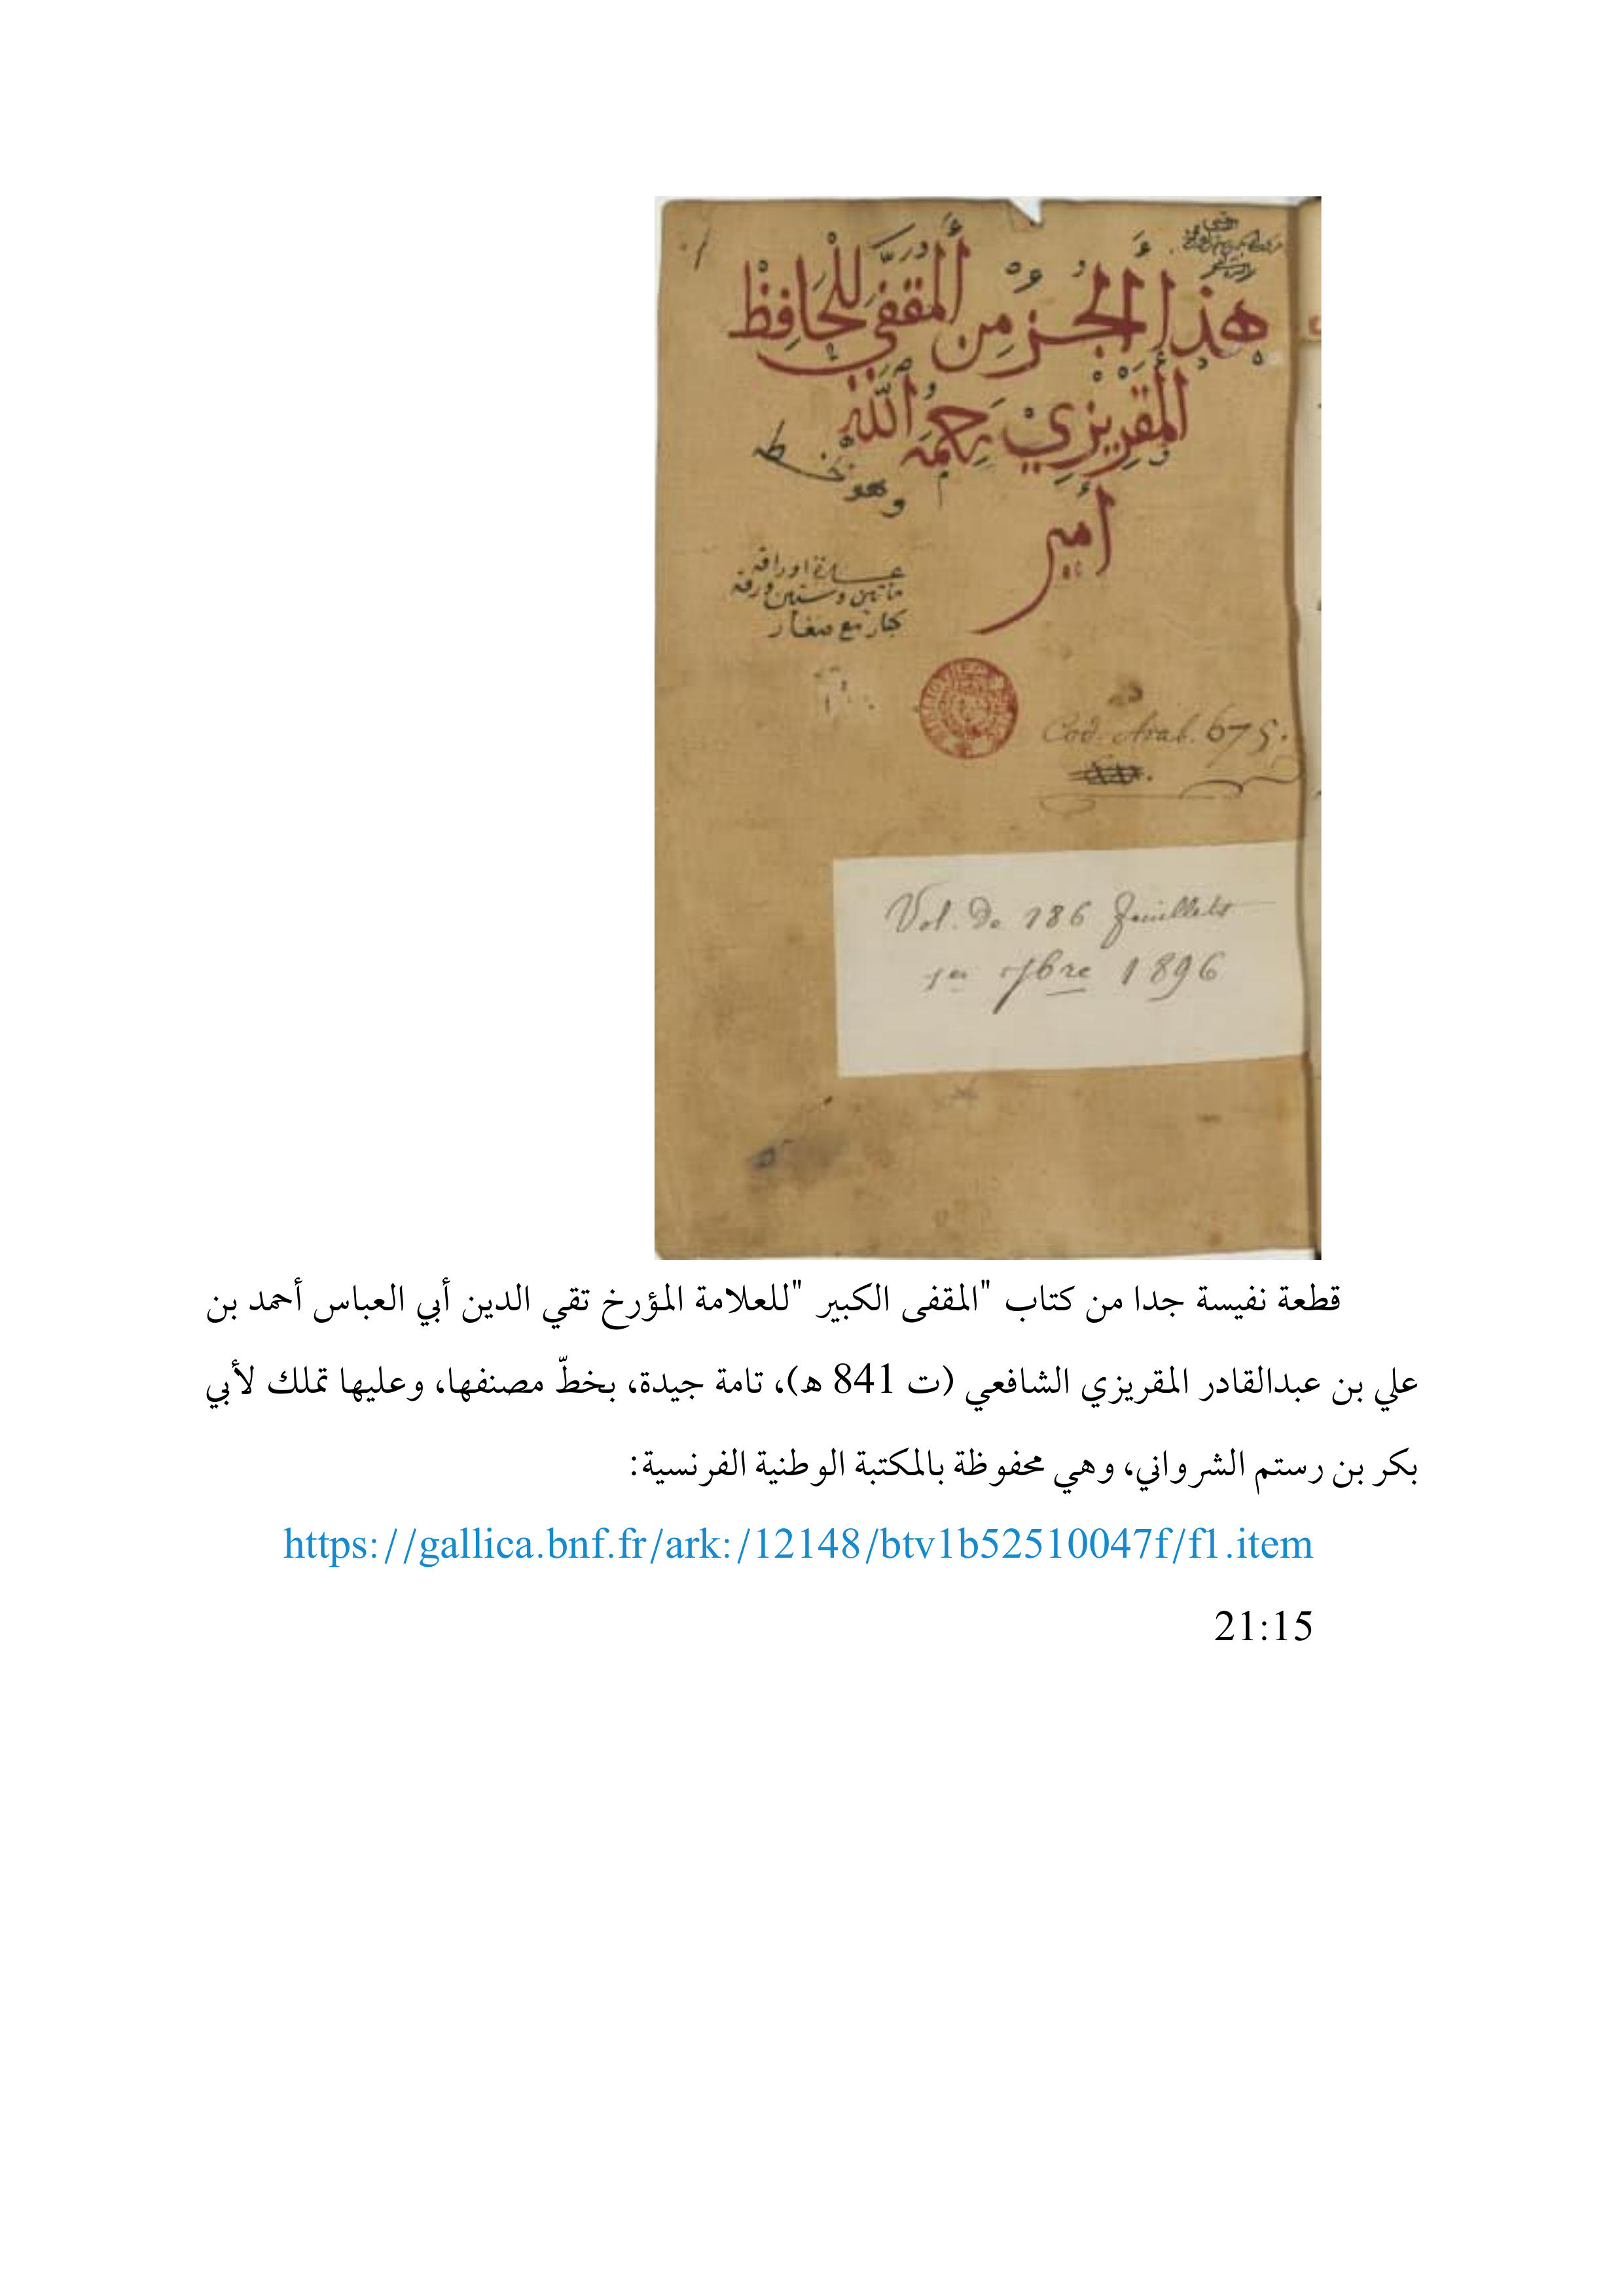 هَذَا الْجُزْءُ مِنَ الْمُقَفَّى لِلْحَافِظِ
الْمَقْرِيزِيِّ رَحِمَهُ اللهُ
وهو بخطه
أمير
عدة اوراقه
مائتين وستين ورقه
كبار مع صغار
Cod. Arab. 675.
Vol. de 186 feuillets
1er 7bre 1896
قطعة نفيسة جدا من كتاب "المقفى الكبير "للعلامة المؤرخ تقي الدين أبي العباس أحمد بن
علي بن عبدالقادر المقريزي الشافعي (ت 841 ه)، تامة جيدة، بخطّ مصنفها، وعليها تملك لأبي
بكر بن رستم الشرواني، وهي محفوظة بالمكتبة الوطنية الفرنسية:
https://gallica.bnf.fr/ark:/12148/btv1b52510047f/f1.item
21:15